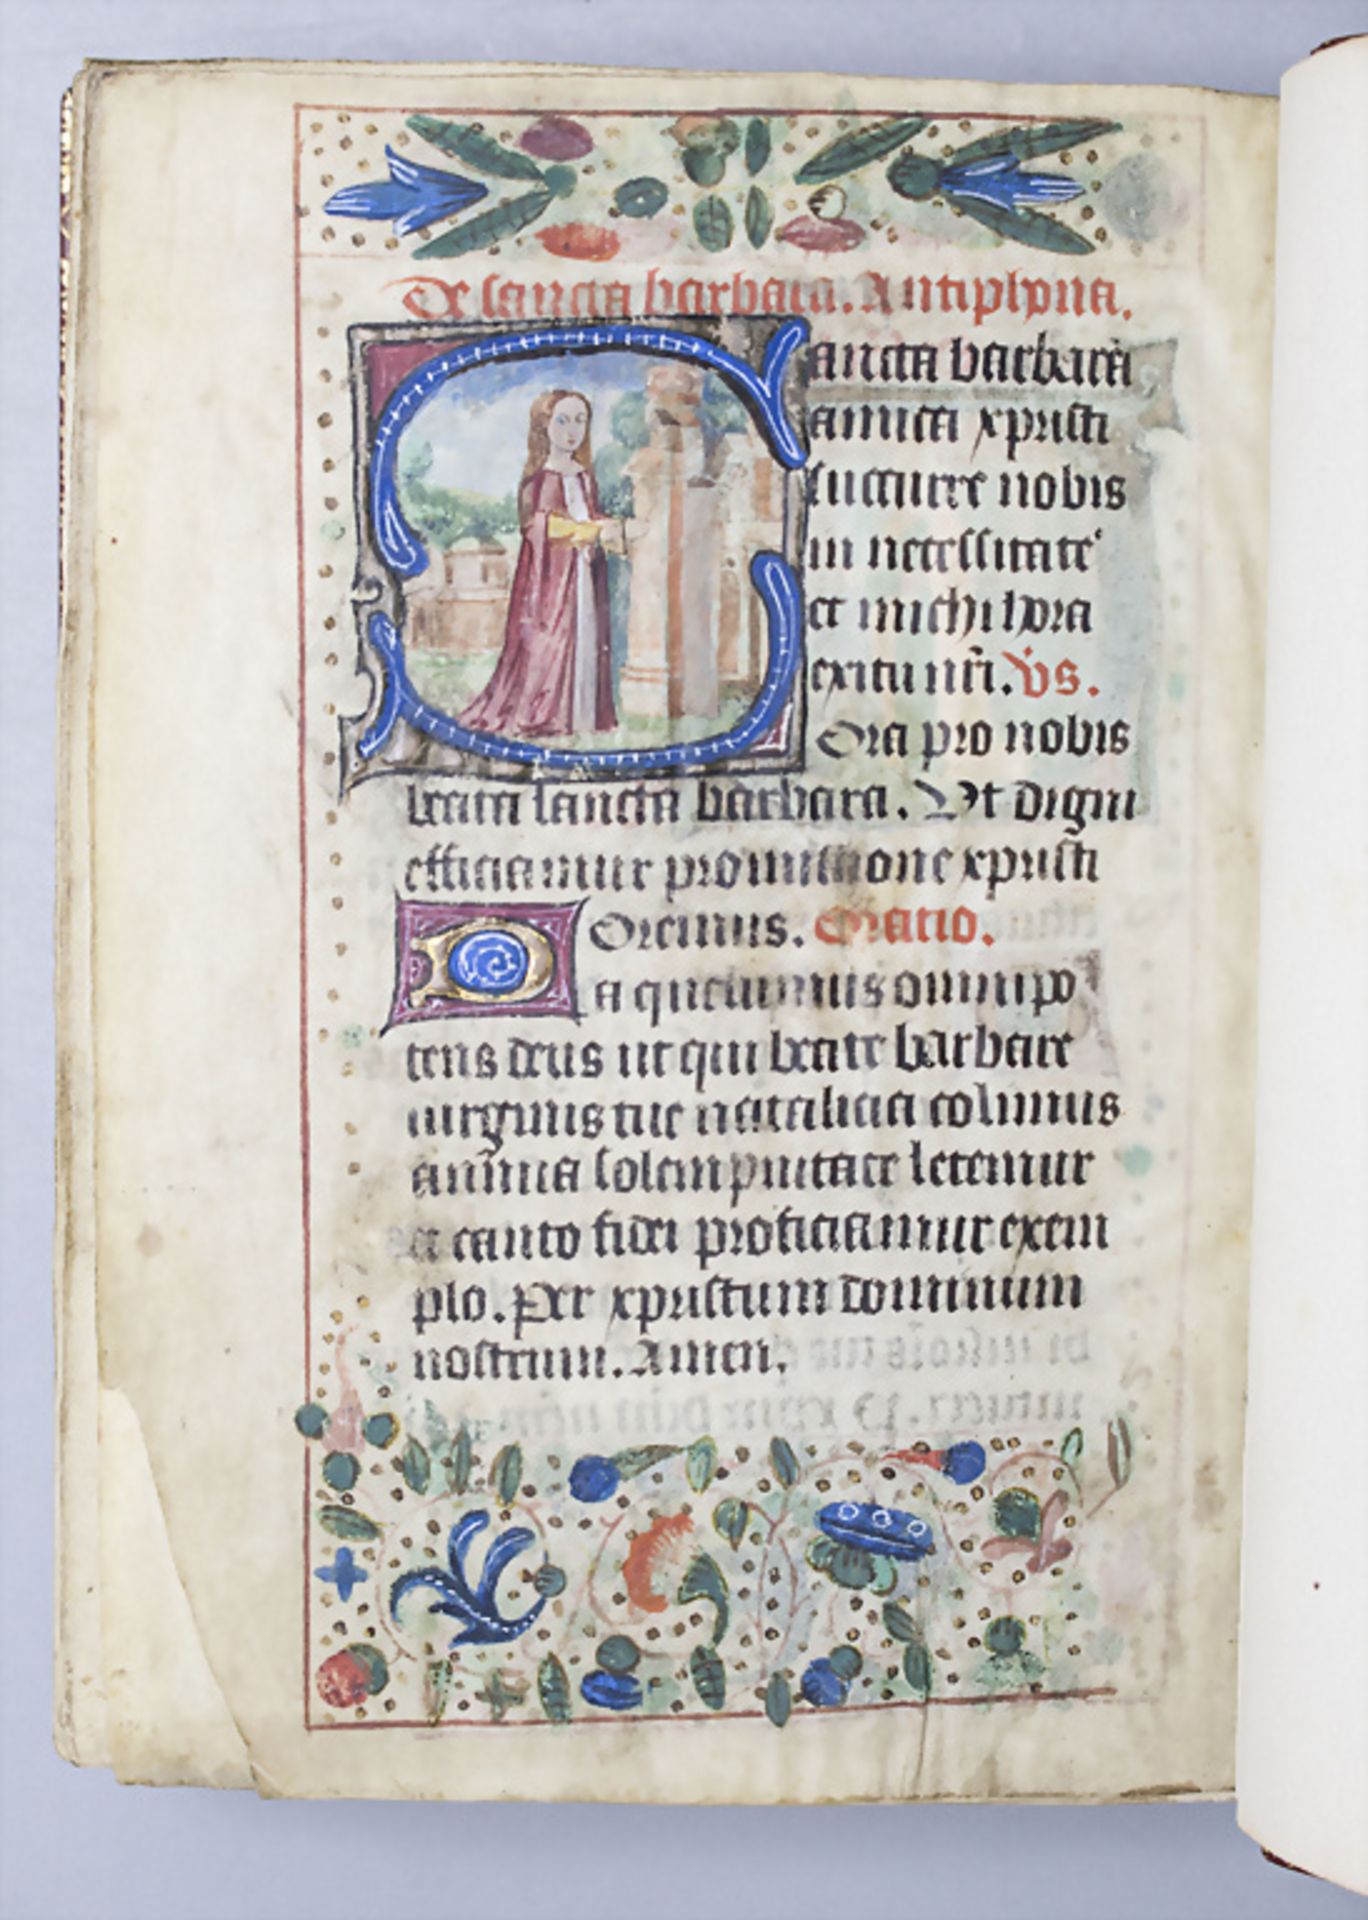 De sancta barbara. Antiphona.
Sancta barbara
amica xpristi
succurre nobis
in necessitate
et michi hora
exitu nr̃i. Vs.
Ora pro nobis
beata sancta barbara. Vt digni
efficiamur promissione xpristi
Oremus. Oratio.
Da quesumus omnipo
tens deus ut qui beate barbare
uirginis tue natalicia colimus
añnua solempnitate letemur
et tanto fidei proficiamur exem
plo. Per xpristum dominum
nostrum. Amen.